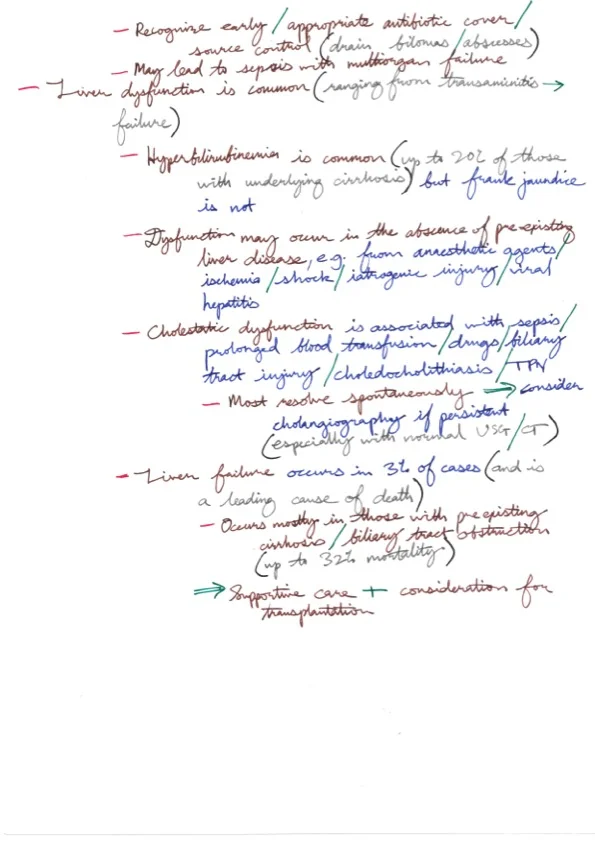 — Recognize early/appropriate antibiotic cover/
source control (drain bilomas/abscesses)
— May lead to sepsis with multiorgan failure
— Liver dysfunction is common (ranging from transaminitis →
failure)
— Hyperbilirubinemia is common (up to 20% of those
with underlying cirrhosis) but frank jaundice
is not
— Dysfunction may occur in the absence of pre-existing
liver disease, e.g. from anaesthetic agents/
ischemia/shock/iatrogenic injury/viral
hepatitis
— Cholestatic dysfunction is associated with sepsis/
prolonged blood transfusion/drugs/biliary
tract injury/choledocholithiasis/TPN
— Most resolve spontaneously ⇒ consider
cholangiography if persistent
(especially with normal USG/CT)
— Liver failure occurs in 3% of cases (and is
a leading cause of death)
— Occurs mostly in those with pre existing
cirrhosis/biliary tract obstruction
(up to 32% mortality)
⇒ Supportive care + consideration for
transplantation